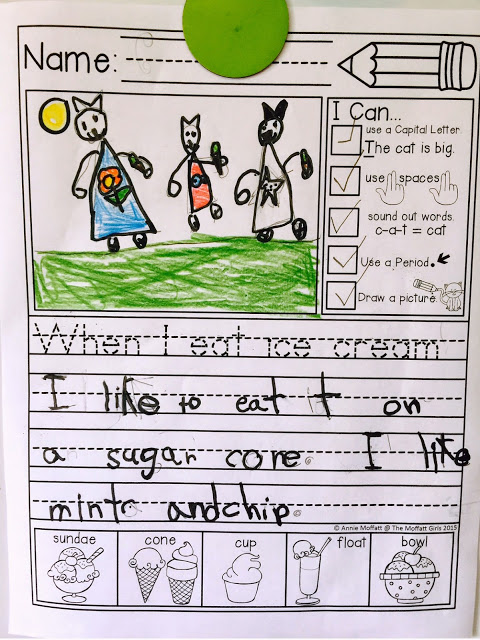 Name:
I Can...
use a Capital Letter.
The cat is big.
use spaces
sound out words.
c-a-t = cat
Use a Period.
Draw a picture.
When I eat ice cream
I like to eat t on
a sugar cone. I like
mint andchip.
© Annie Moffatt @ The Moffatt Girls 2015
sundae cone cup float bowl